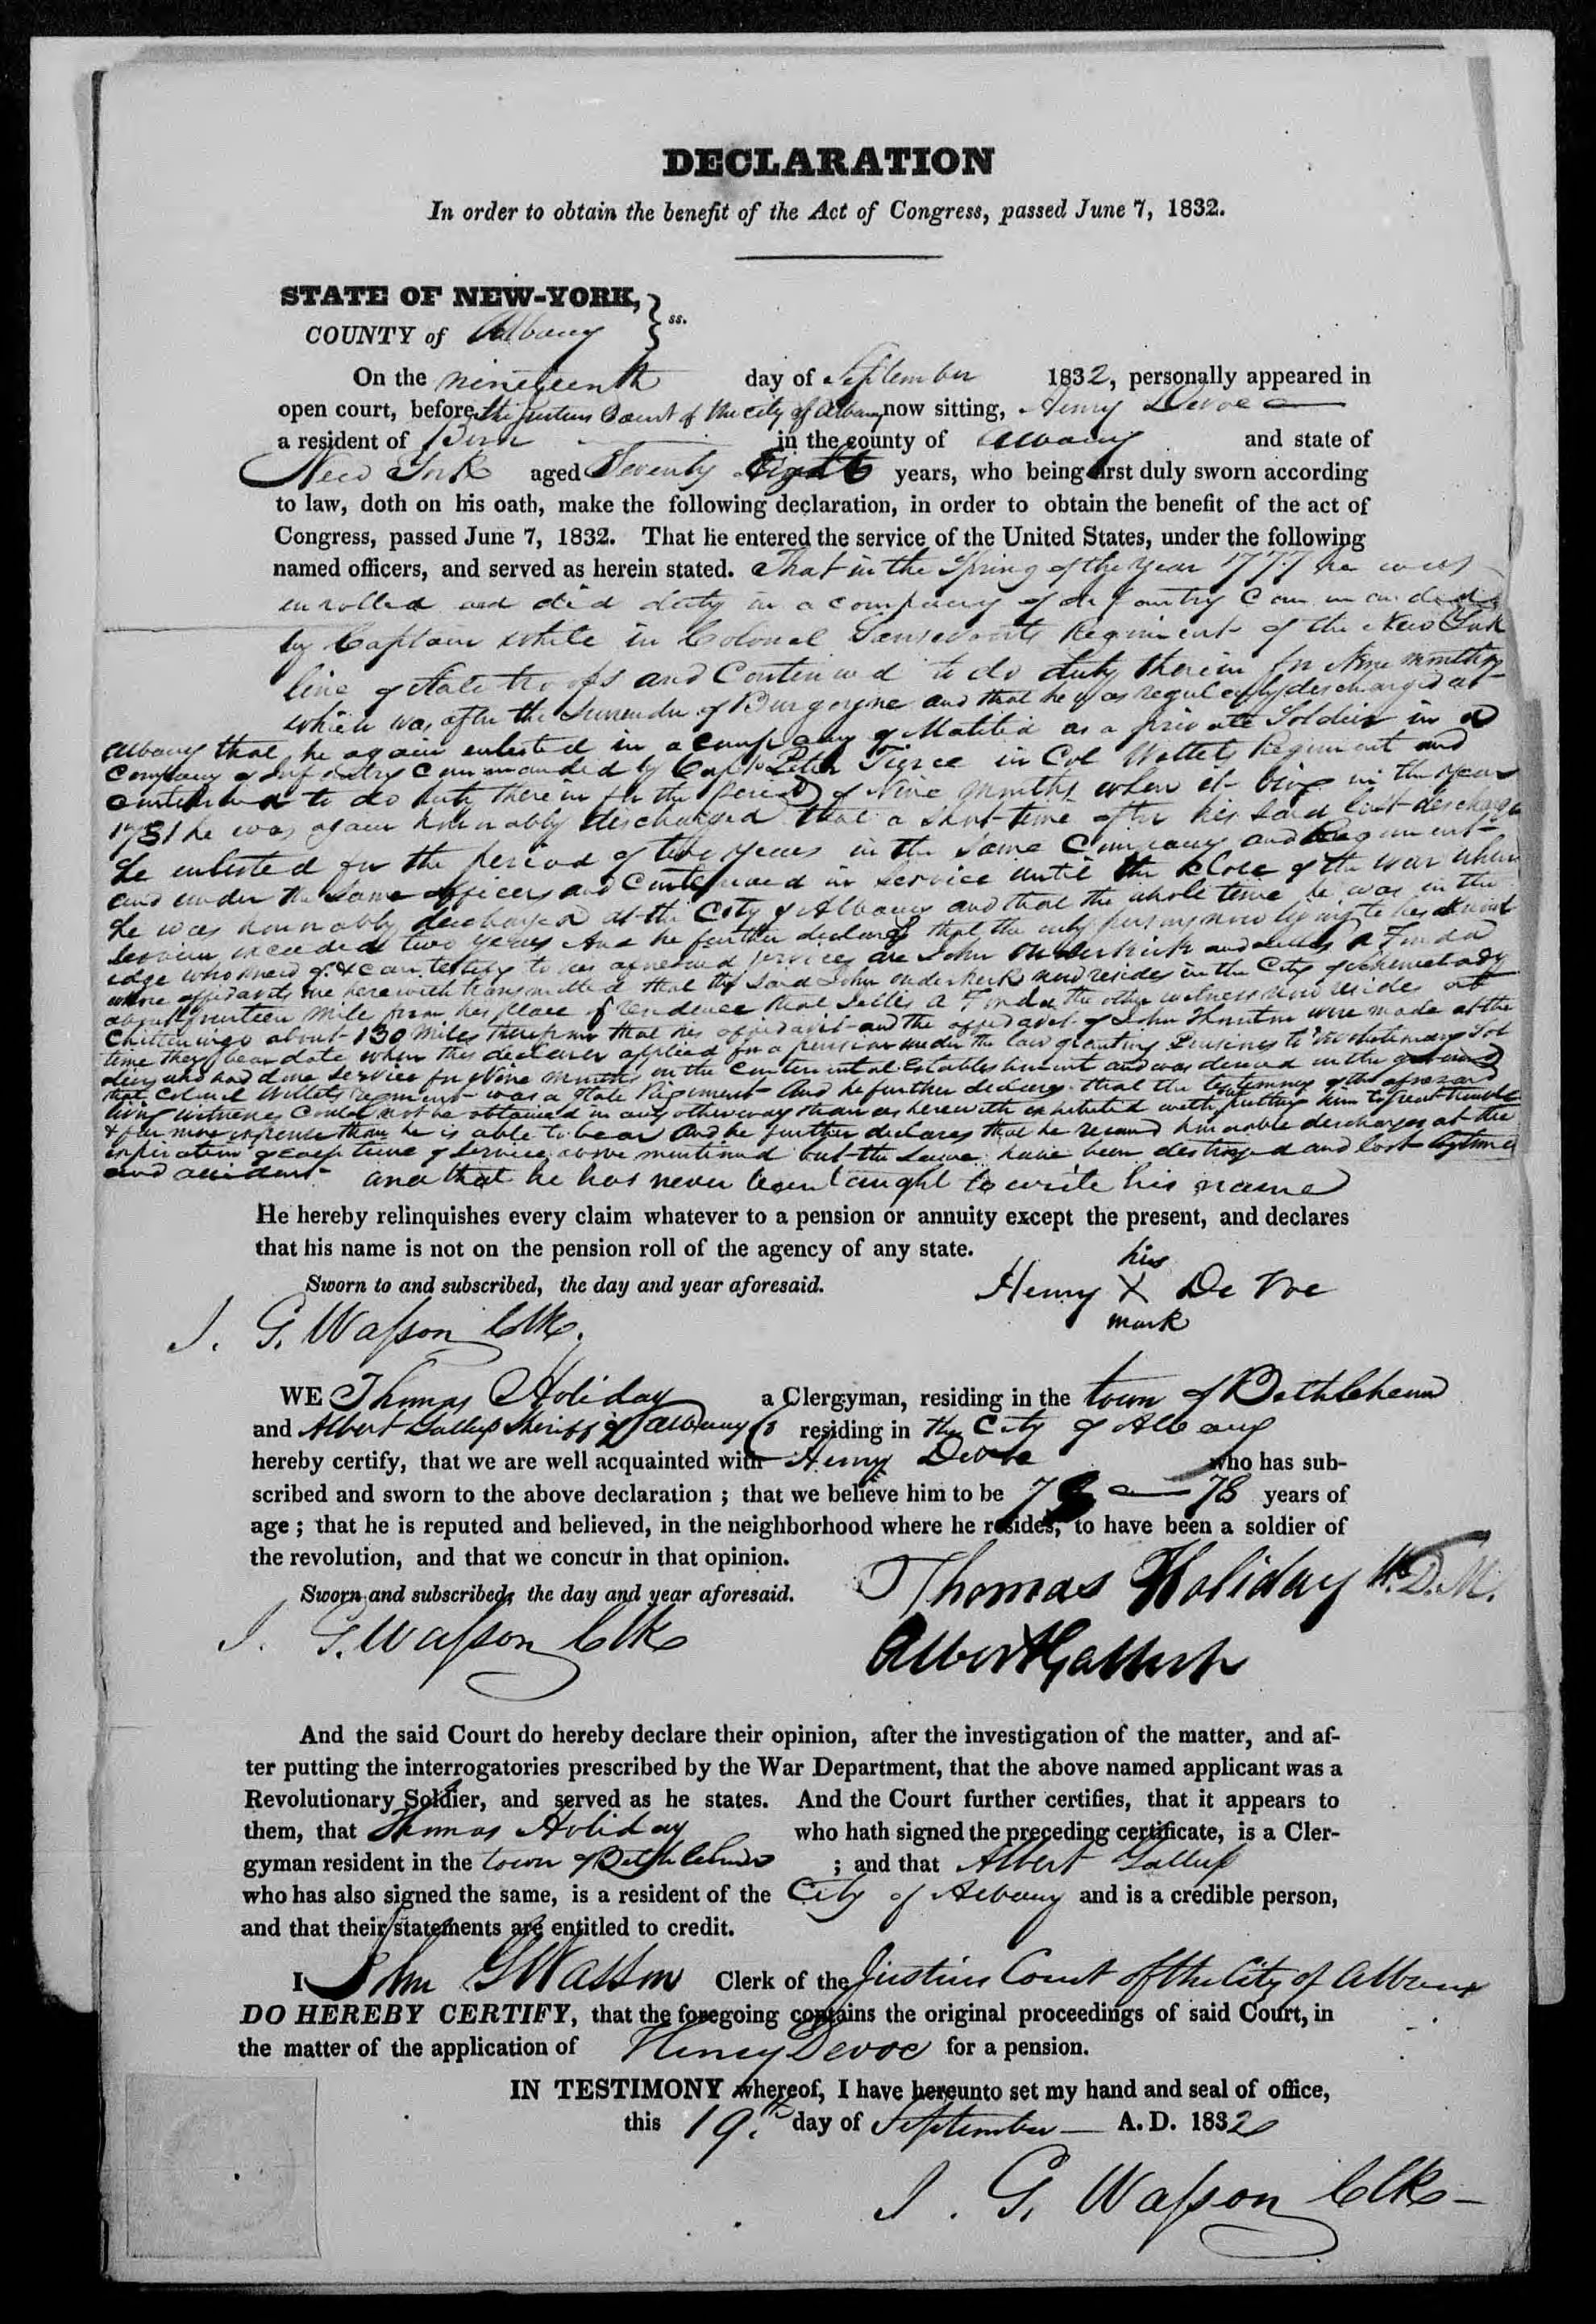 DECLARATION
In order to obtain the benefit of the Act of Congress, passed June 7, 1832.
STATE OF NEW-YORK,
COUNTY of Albany } ss.
On the nineteenth day of September 1832, personally appeared in
open court, before the Justices Court of the City of Albany now sitting, Henry Devoe
a resident of Bern in the county of Albany and state of
New York aged Seventy Eight years, who being first duly sworn according
to law, doth on his oath, make the following declaration, in order to obtain the benefit of the act of
Congress, passed June 7, 1832. That he entered the service of the United States, under the following
named officers, and served as herein stated. That in the Spring of the Year 1777 he was
enrolled and did duty in a company of infantry Commanded
by Captain White in Colonel Gansevoorts Regiment of the New York
line of State troops and Continued to do duty therein for Nine months
which was after the Surrender of Burgoyne and that he was regularly discharged at
Albany that he again enlisted in a company of Malitia as a private Soldier in a
Company of Infantry Commanded by Capt Peter Tierce in Col Willets Regiment and
continued to do duty therein for the period of Nine months when it being in the year
1781 he was again honorably discharged that a short time after his said last discharge
he enlisted for the period of two years in the same Company and Regiment
and under the same officers and continued in service until the close of the war when
he was honorably discharged at the City of Albany and that the whole time he was in the
service exceeded two years And he further declares that the only persons now living to his knowl
edge who knew of & can testify to his aforesaid services are John Ouderkirk and Jellis A Fonda
whose affidavits are herewith transmitted that the said John Ouderkerk now resides in the City of Schenectady
about fourteen mile from his place of residence that Jellis A Fonda the other witness now resides at
Chittenango about 130 miles therefrom that his affidavit and the affidavit of John Thornton were made at the
time they bear date when this declarer applied for a pension under the law granting Pensions to revolutionary Sol
diers who had done service for Nine months on the Continental Establishment and was denied on the ground
that Colonel Willets regiment was a State Regiment And he further declares that the testimony of the aforesaid
living witnesses could not be obtained in any other way than as herewith exhibited without putting him to great trouble
& far more expense than he is able to bear And he further declares that he received honorable discharges at the
expiration of each time of service above mentioned but the same have been destroyed and lost by time
and accident and that he has never been taught to write his name
He hereby relinquishes every claim whatever to a pension or annuity except the present, and declares
that his name is not on the pension roll of the agency of any state.
Sworn to and subscribed, the day and year aforesaid.
his
Henry X De Voe
mark
J. G. Wasson Clk.
WE Thomas Holiday a Clergyman, residing in the town of Bethlehem
and Albert Gallup Sheriff of Albany Co residing in the City of Albany
hereby certify, that we are well acquainted with Henry Devoe who has sub-
scribed and sworn to the above declaration ; that we believe him to be 78 — 78 years of
age ; that he is reputed and believed, in the neighborhood where he resides, to have been a soldier of
the revolution, and that we concur in that opinion.
Sworn and subscribed, the day and year aforesaid.
Thomas Holiday V.D.M.
J. G. Wasson Clk
Albert Gallup
And the said Court do hereby declare their opinion, after the investigation of the matter, and af-
ter putting the interrogatories prescribed by the War Department, that the above named applicant was a
Revolutionary Soldier, and served as he states. And the Court further certifies, that it appears to
them, that Thomas Holiday who hath signed the preceding certificate, is a Cler-
gyman resident in the town of Bethlehem ; and that Albert Gallup
who has also signed the same, is a resident of the City of Albany and is a credible person,
and that their statements are entitled to credit.
I John G Wasson Clerk of the Justices Court of the City of Albany
DO HEREBY CERTIFY, that the foregoing contains the original proceedings of said Court, in
the matter of the application of Henry Devoe for a pension.
IN TESTIMONY whereof, I have hereunto set my hand and seal of office,
this 19.th day of September — A. D. 1832
J. G. Wasson Clk